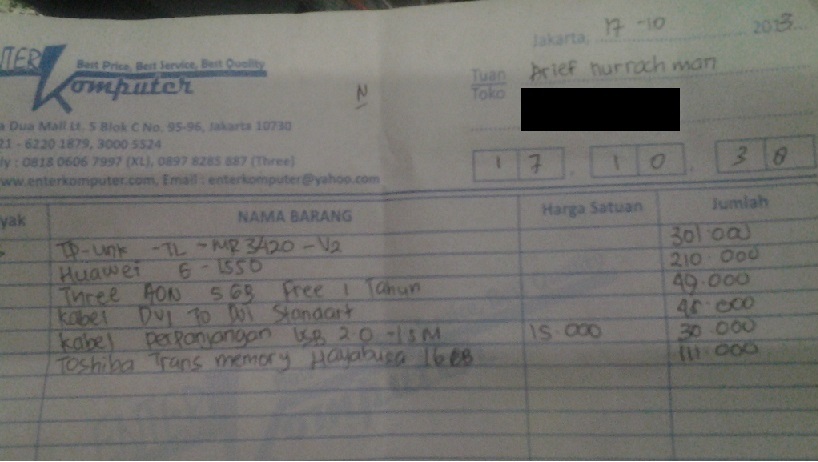 Jakarta, 17-10 2013
NTER
Best Price, Best Service, Best Quality
Komputer
Tuan Arief nurrochman
Toko
N
a Dua Mall Lt. 5 Blok C No. 95-96, Jakarta 10730
21 - 6220 1879, 3000 5524
ly : 0818 0606 7997 (XL), 0897 8285 887 (Three)
www.enterkomputer.com, Email : enterkomputer@yahoo.com
17.10.38
yak NAMA BARANG Harga Satuan Jumlah
TP-Link -TL-MR3420-V2 301.000
Huawei E-1550 210.000
Three AON 5GB Free 1 Tahun 49.000
kabel DVI To DVI Standart 48.000
kabel perpanjangan USB 2.0 -1.5M 15.000 30.000
Toshiba Trans memory Hayabusa 16GB 111.000